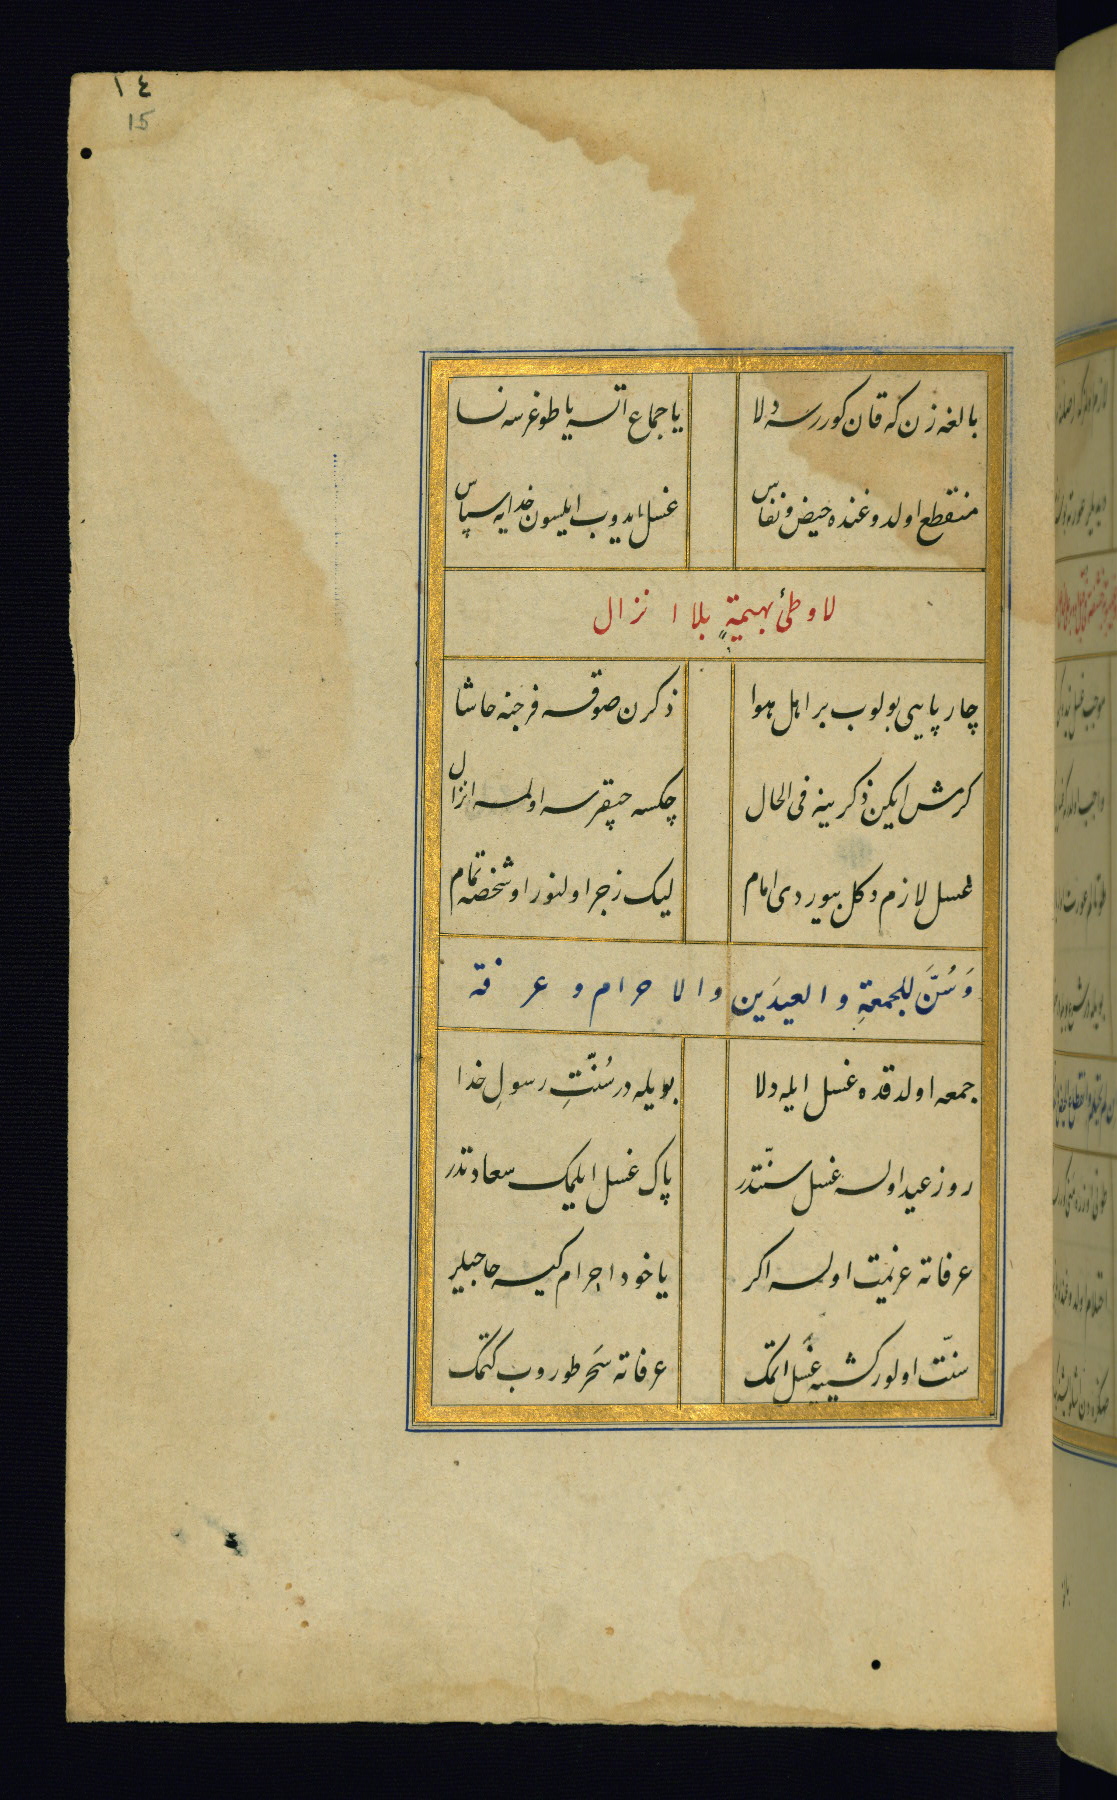 ١٤
15
بالغه زن که قان کوررسه دلا یا جماع اتسه یا طوغرسه نسا
منقطع اولدوغنده حیض و نفاس غسل ایدوب ایلیسون خدایه سپاس
لا وطئ بهیمةٍ بلا انزال
چار پایی بولوب بر اهل هوا ذکرن صوقسه فرجنه حاشا
کرمش ایکن ذکرینه فی الحال چکسه چیقرسه اولمسه انزال
غسل لازم دکل بیوردی امام لیک زجر اولنور او شخصه تمام
وَسُنَّ للجمعةِ والعیدَین والاحرام وعرفة
جمعه اولدقده غسل ایله دلا بویله در سُنّتِ رسولِ خدا
روز عید اولسه غسل سنّتدر پاک غسل ایلمک سعادتدر
عرفاته عزیمت اولسه اکر یا خود احرام کیسه حاجیلر
سنّت اولور کشییه غَسل اتمک عرفاته سَحَر طوروب کتمک